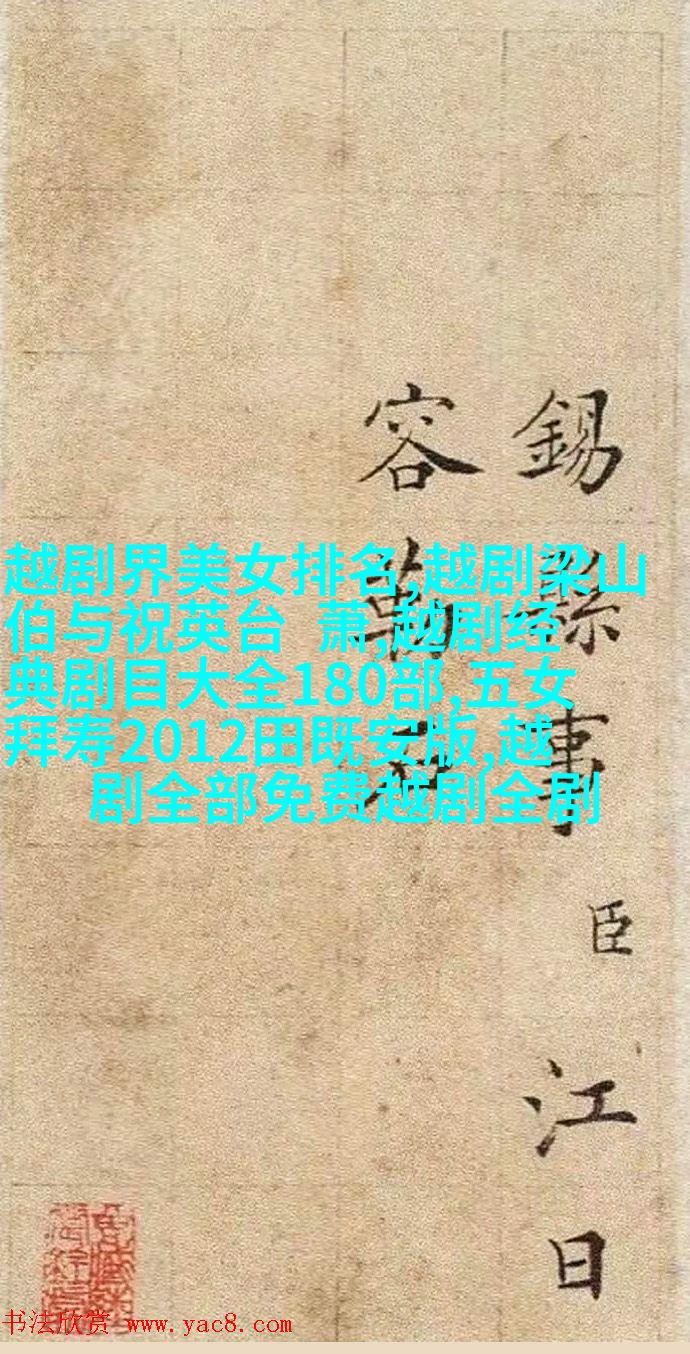 越剧界美女排名,越剧梁山
伯与祝英台 萧,越剧经
典剧目大全180部,五女
拜寿2012田既安版,越
剧全部免费越剧全剧
錫縣事臣江日
容勒
书法欣赏 www.yac8.com